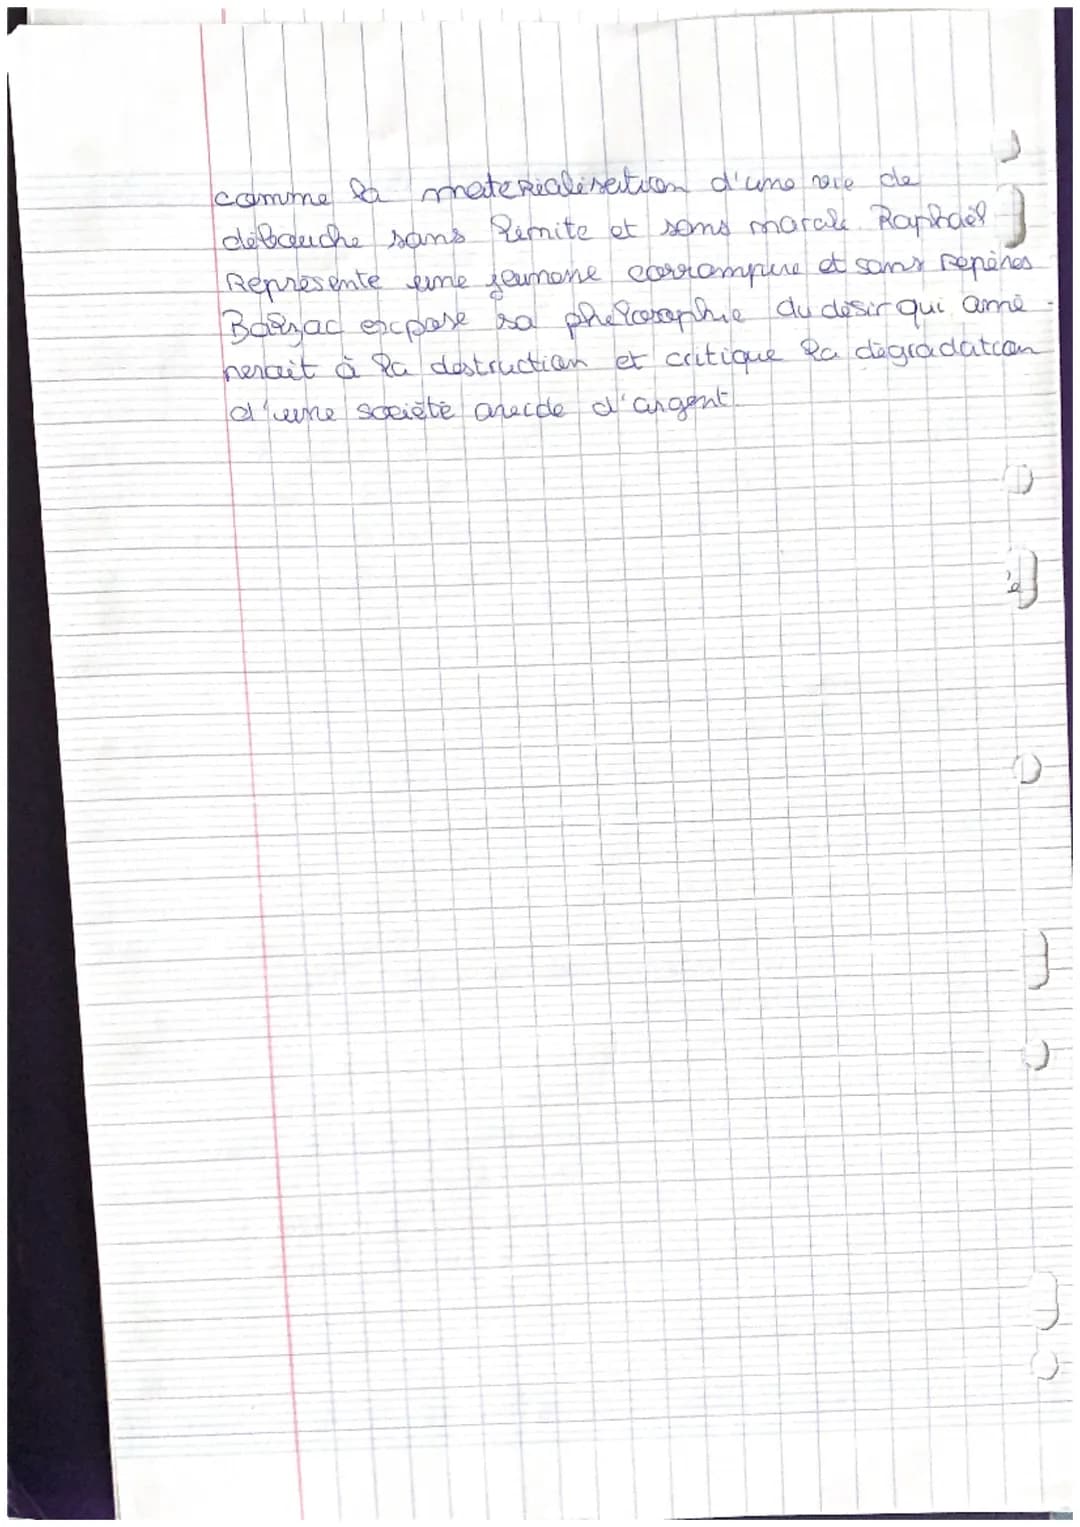 comme la materialisation d'une vie de
débauche sans limite et sans morale. Raphaël
Représente une jeunene corrompue et sans repères
Balzac expose sa philosophie du désir qui amè-
nerait à la destruction et critique la dégradation
d'une société avide d'argent.